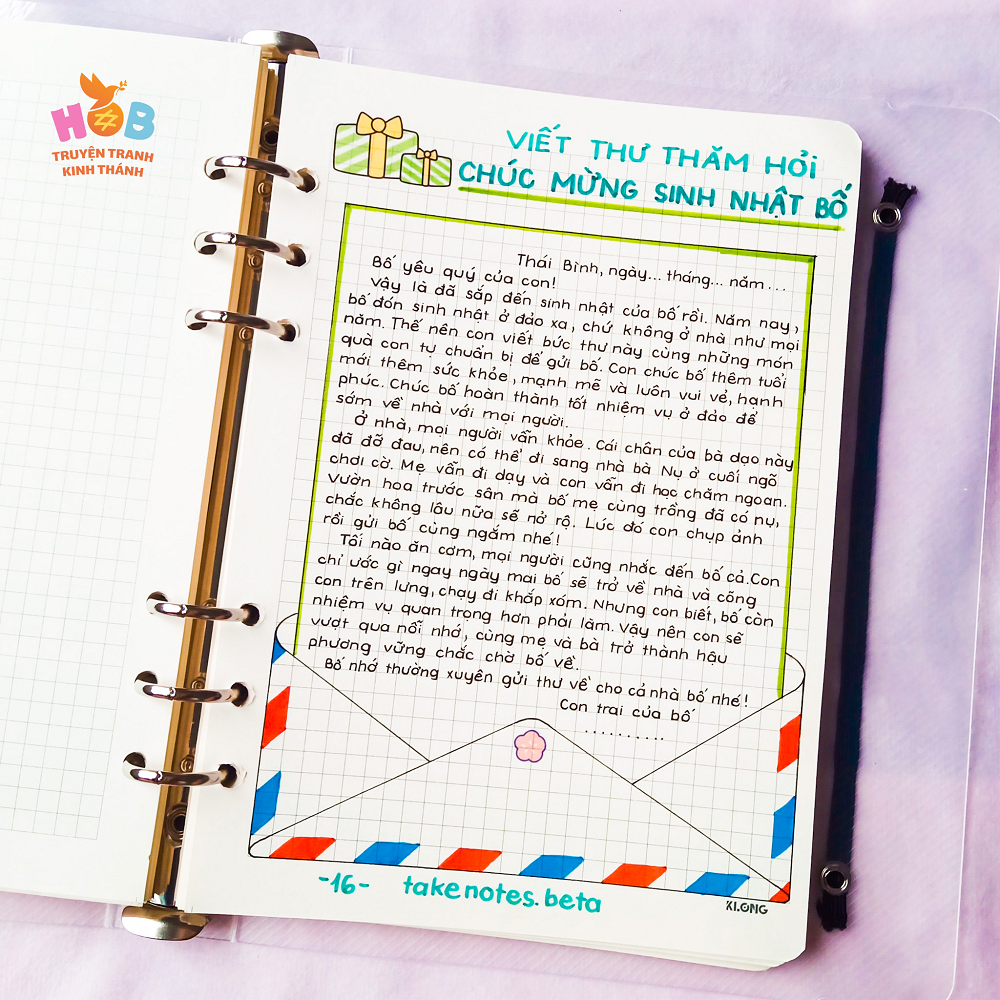 HOB
TRUYỆN TRANH
KINH THÁNH
VIẾT THƯ THĂM HỎI
CHÚC MỪNG SINH NHẬT BỐ
Thái Bình, ngày... tháng... năm...
Bố yêu quý của con!
Vậy là đã sắp đến sinh nhật của bố rồi. Năm nay,
bố đón sinh nhật ở đảo xa, chứ không ở nhà như mọi
năm. Thế nên con viết bức thư này cùng những món
quà con tự chuẩn bị để gửi bố. Con chúc bố thêm tuổi
mới thêm sức khỏe, mạnh mẽ và luôn vui vẻ, hạnh
phúc. Chúc bố hoàn thành tốt nhiệm vụ ở đảo để
sớm về nhà với mọi người.
Ở nhà, mọi người vẫn khỏe. Cái chân của bà dạo này
đã đỡ đau, nên có thể đi sang nhà bà Nụ ở cuối ngõ
chơi cờ. Mẹ vẫn đi dạy và con vẫn đi học chăm ngoan.
Vườn hoa trước sân mà bố mẹ cùng trồng đã có nụ,
chắc không lâu nữa sẽ nở rộ. Lúc đó con chụp ảnh
rồi gửi bố cùng ngắm nhé!
Tối nào ăn cơm, mọi người cũng nhắc đến bố cả. Con
chỉ ước gì ngay ngày mai bố sẽ trở về nhà và cõng
con trên lưng, chạy đi khắp xóm. Nhưng con biết, bố còn
nhiệm vụ quan trọng hơn phải làm. Vậy nên con sẽ
vượt qua nỗi nhớ, cùng mẹ và bà trở thành hậu
phương vững chắc chờ bố về.
Bố nhớ thường xuyên gửi thư về cho cả nhà bố nhé!
Con trai của bố
..........
-16- takenotes.beta
KI.ONG